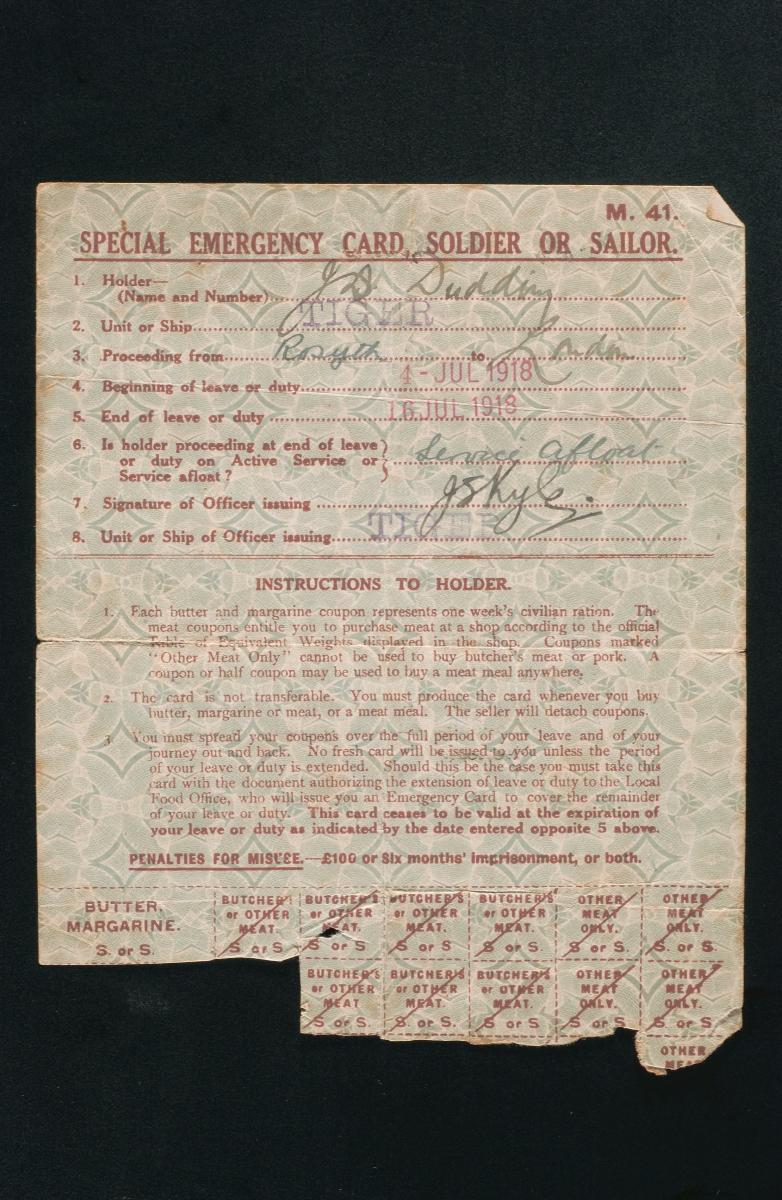 M. 41.
SPECIAL EMERGENCY CARD, SOLDIER OR SAILOR.
1. Holder—
(Name and Number) J.S. Dudding
TIGER
2. Unit or Ship
3. Proceeding from Rosyth to London
4. Beginning of leave or duty 4 - JUL 1918
5. End of leave or duty 16 JUL 1918
6. Is holder proceeding at end of leave
or duty on Active Service or
Service afloat? Service Afloat
7. Signature of Officer issuing
8. Unit or Ship of Officer issuing TIGER
INSTRUCTIONS TO HOLDER.
1. Each butter and margarine coupon represents one week's civilian ration. The
meat coupons entitle you to purchase meat at a shop according to the official
Table of Equivalent Weights displayed in the shop. Coupons marked
"Other Meat Only" cannot be used to buy butcher's meat or pork. A
coupon or half coupon may be used to buy a meat meal anywhere.
2. The card is not transferable. You must produce the card whenever you buy
butter, margarine or meat, or a meat meal. The seller will detach coupons.
3 You must spread your coupons over the full period of your leave and of your
journey out and back. No fresh card will be issued to you unless the period
of your leave or duty is extended. Should this be the case you must take this
card with the document authorizing the extension of leave or duty to the Local
Food Office, who will issue you an Emergency Card to cover the remainder
of your leave or duty. This card ceases to be valid at the expiration of
your leave or duty as indicated by the date entered opposite 5 above.
PENALTIES FOR MISUSE.—£100 or Six months' imprisonment, or both.
BUTTER, BUTCHER'S BUTCHER'S BUTCHER'S BUTCHER'S OTHER OTHER
MARGARINE. or OTHER or OTHER or OTHER or OTHER MEAT MEAT
MEAT. MEAT. MEAT. MEAT. ONLY. ONLY.
S. or S. S or S S or S. S or S S or S S. or S. S. or S.
BUTCHER'S BUTCHER'S BUTCHER'S OTHER OTHER
or OTHER or OTHER or OTHER MEAT MEAT
MEAT MEAT. MEAT. ONLY. ONLY.
S or S. S or S. S or S S or S. S or S.
OTHER
MEAT